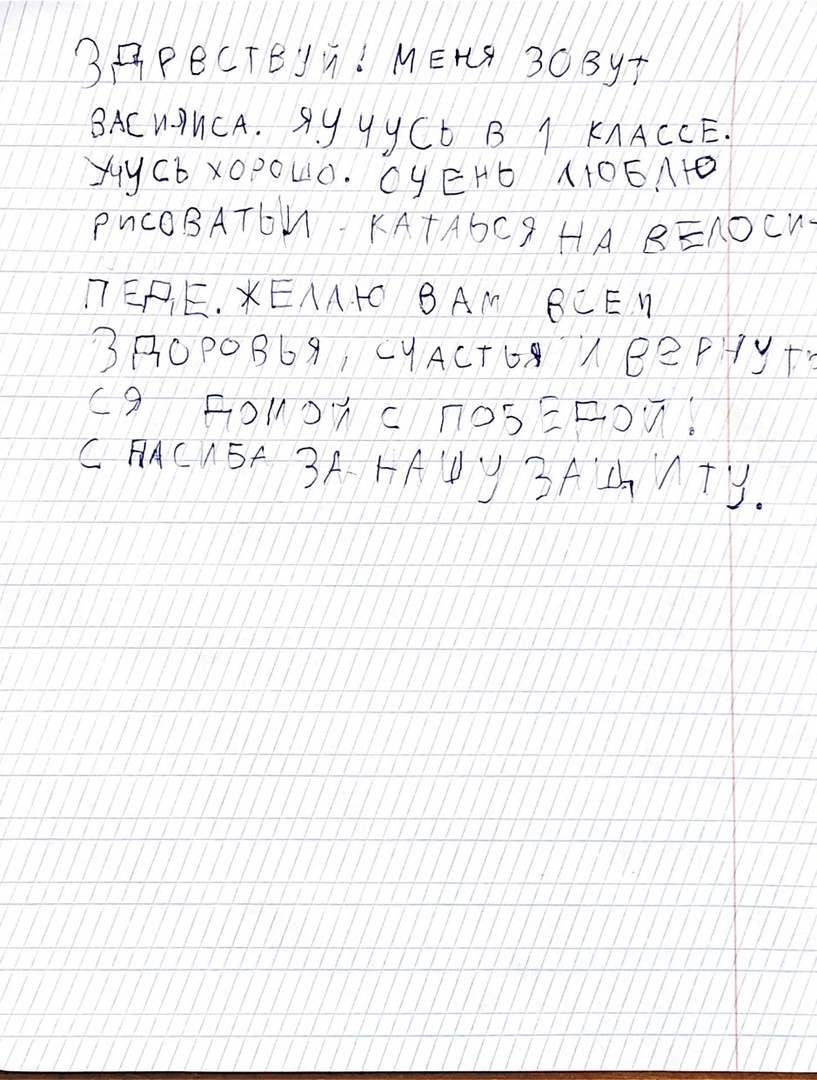 ЗДРВСТВУЙ! МЕНЯ ЗОВУТ
ВАСИЛИСА. Я УЧУСЬ В 1 КЛАССЕ.
УЧУСЬ ХОРОШО. ОЧЕНЬ ЛЮБЛЮ
РИСОВАТЬ И КАТАЬСЯ НА ВЕЛОСИ-
ПЕДЕ. ЖЕЛАЮ ВАМ ВСЕМ
ЗДОРОВЬЯ, СЧАСТЬЯ И ВЕРНУТЬ
СЯ ДОМОЙ С ПОБЕДОЙ!
СПАСИБА ЗА НАШУ ЗАЩИТУ.